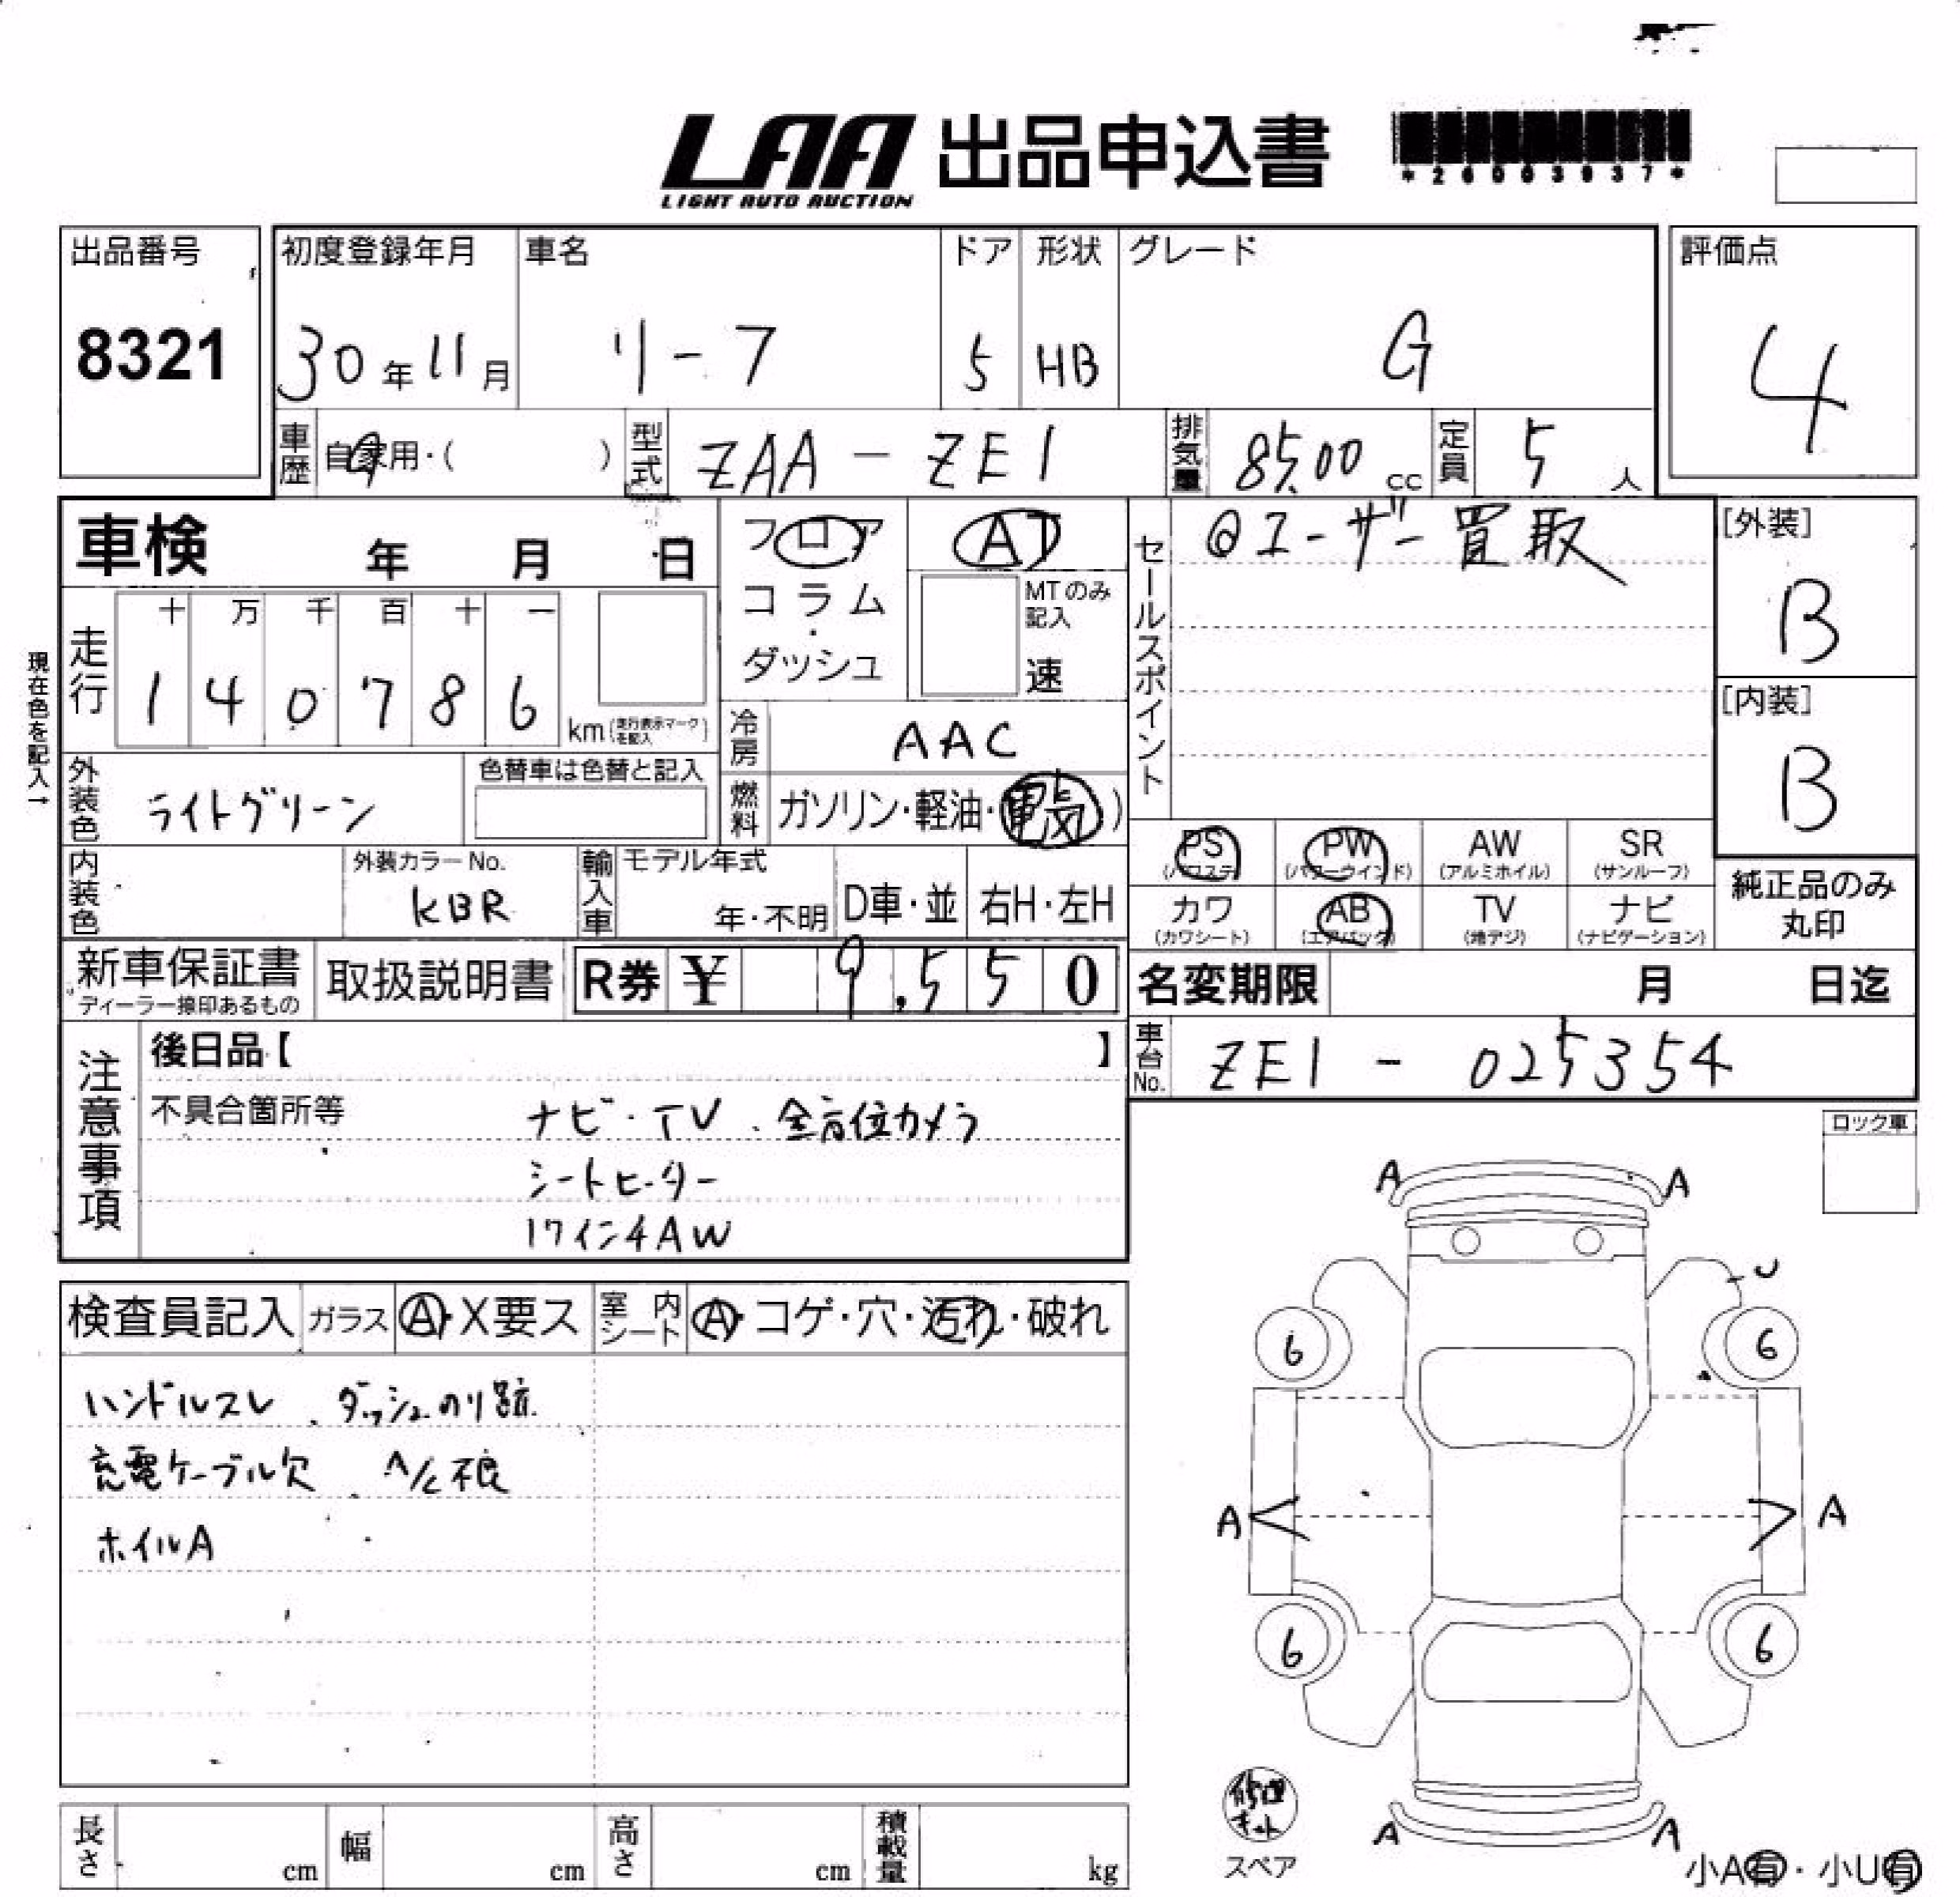 LAA 出品申込書
LIGHT AUTO AUCTION
出品番号 初度登録年月 車名 ドア 形状 グレード 評価点
8321 30年11月 リーフ 5 HB G 4
車歴 自家用・( ) 型式 ZAA-ZE1 排気量 85.00 cc 定員 5人
車検 年 月 日 フロア AT セールスポイント ◎ユーザー買取 [外装]
コラム・ MTのみ記入 B
ダッシュ 速
現在色を記入→
走行 十 万 千 百 十 一
1 4 0 7 8 6 km(走行表示マークを記入) 冷房 AAC [内装]
B
外装色 ライトグリーン 色替車は色替と記入 燃料 ガソリン・軽油・(電気)
PS (パワステ) PW (パワーウインド) AW (アルミホイル) SR (サンルーフ)
内装色 外装カラーNo. KBR 輸入車 モデル年式 年・不明 D車・並 右H・左H
カワ (カワシート) AB (エアバック) TV (地デジ) ナビ (ナビゲーション) 純正品のみ丸印
新車保証書 ディーラー捺印あるもの 取扱説明書 R券 ¥ 9,550 名変期限 月 日迄
車台No. ZE1-025354
注意事項 後日品【 】
不具合箇所等 ナビ・TV、全方位カメラ
シートヒーター
17インチAW
ロック車
検査員記入 ガラス A・X要ス 室内シート A・コゲ・穴・汚れ・破れ
ハンドルスレ、ダッシュのり跡
充電ケーブル欠、A/C不良
ホイルA
A A
U
6 6
A A
6 6
A A
修理キット
スペア
小A有・小U有
長さ cm 幅 cm 高さ cm 積載量 kg